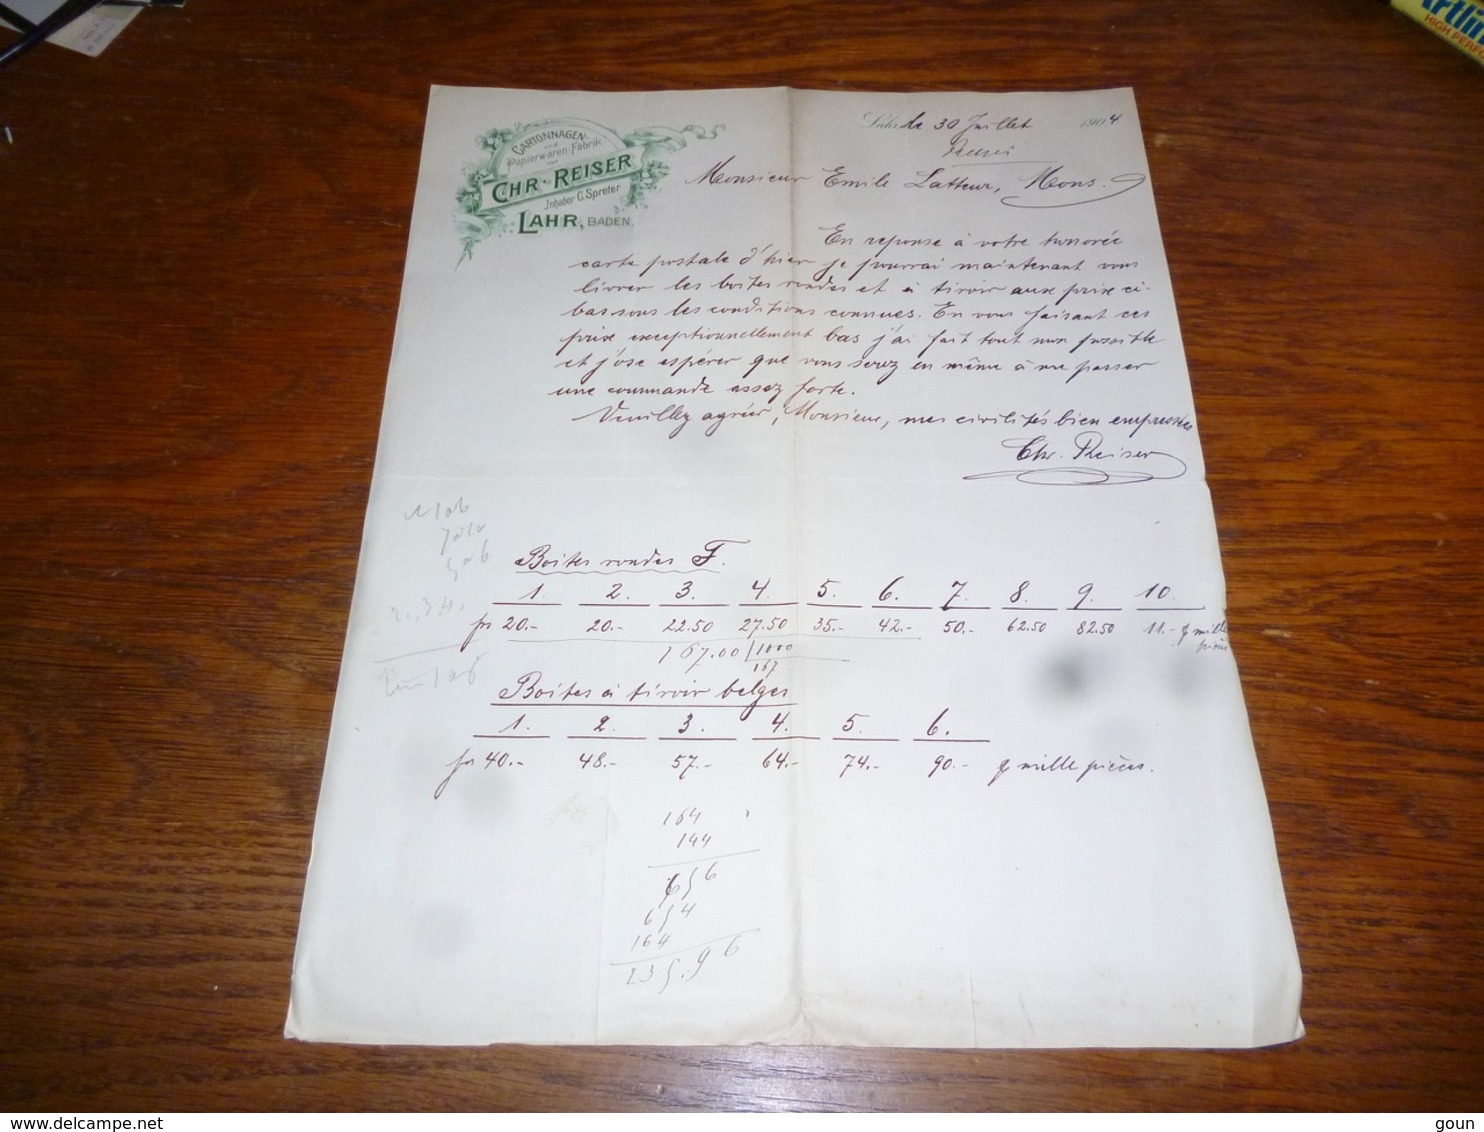 CARTONNAGEN-
und
Papierwaren Fabrik
von
CHR. REISER
Inhaber C. Spreter
LAHR, BADEN.
Lahr, le 30 Juillet 1904
Monsieur Emile Latteur, Mons.
En reponse à votre honorée
carte postale d'hier je pourrai maintenant vous
livrer les boîtes rondes et à tiroir aux prix ci-
bas sous les conditions connues. En vous faisant ces
prix exceptionnellement bas j'ai fait tout mon possible
et j'ose espérer que vous serez en même à me passer
une commande assez forte.
Veuillez agréer, Monsieur, mes civilités bien empressées
Chr. Reiser
Boîtes rondes F.
1. 2. 3. 4. 5. 6. 7. 8. 9. 10.
frs 20.- 20.- 22.50 27.50 35.- 42.- 50.- 62.50 82.50 11.- % mille
pièces
167.00 1000
167
2, 3, 4,
Boîtes à tiroir belges
1. 2. 3. 4. 5. 6.
frs 40.- 48.- 57.- 64.- 74.- 90.- % mille pièces.
164
144
656
654
164
235.96
rtlin
HIGH PERF
delcampe.net
goun